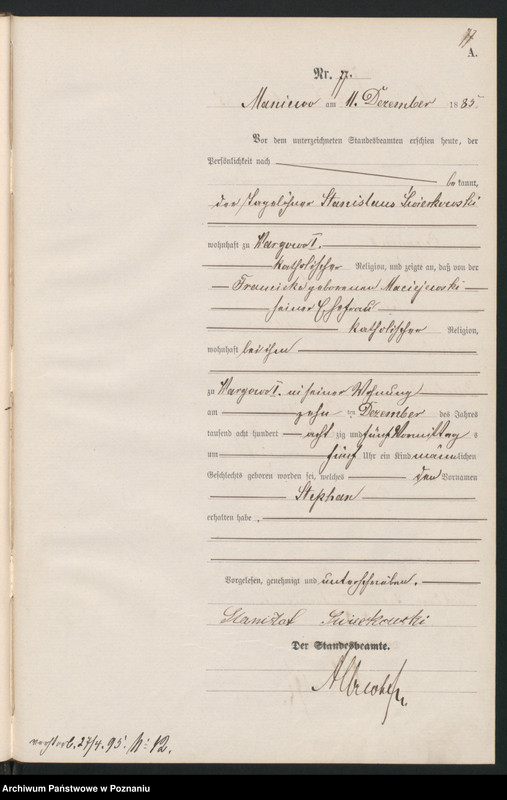 A.
Nr. 77.
Maniewo am 11. Dezember 1885.
Vor dem unterzeichneten Standesbeamten erschien heute, der
Persönlichkeit nach
be kannt,
der Tagelöhner Stanislaus Świerkowski
wohnhaft zu Wargowo I.
katholischer Religion, und zeigte an, daß von der
Franciska geborenen Maciejewski
seiner Ehefrau
katholischer Religion,
wohnhaft bei ihm
zu Wargowo I. in seiner Wohnung
am zehn ten Dezember des Jahres
tausend acht hundert acht zig und fünf Vormittag s
um fünf Uhr ein Kind männlichen
Geschlechts geboren worden sei, welches den Vornamen
Stephan
erhalten habe.
Vorgelesen, genehmigt und unterschrieben.
Stanisław Świerkowski
Der Standesbeamte.
verstorb. 27/4. 95. No 12.
Archiwum Państwowe w Poznaniu